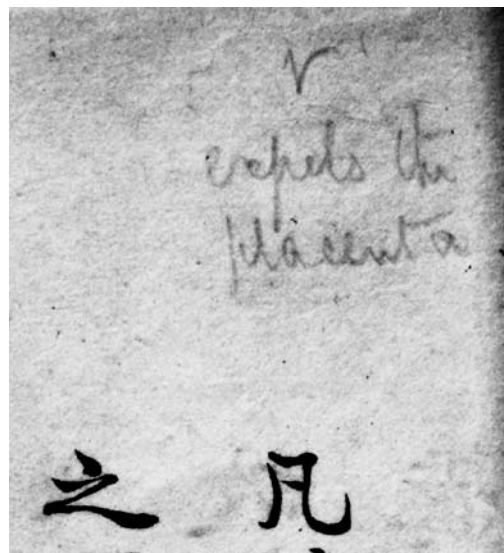 expels the
placenta
凡
之